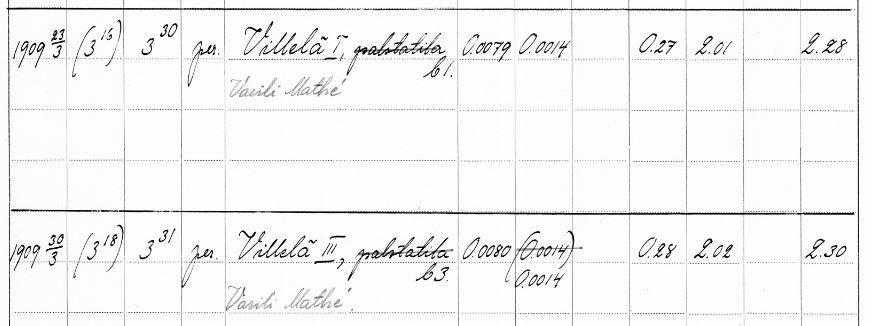 1909 23/3 (3 16) 3 30 per. Villelä I, palstatila 0.0079 0.0014 0.27 2.01 2.28
b1.
Vasili Mathé
1909 30/3 (3 18) 3 31 per. Villelä III, palstatila 0.0080 (0.0014) 0.28 2.02 2.30
b3. 0.0014
Vasili Mathé.